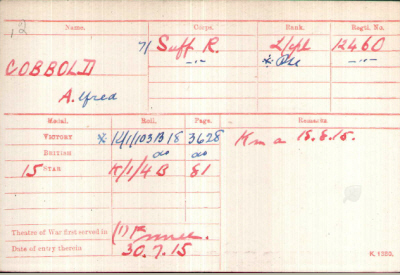 12
Name. Corps. Rank. Regtl. No.
7/ Suff. R. L/Cpl 12460
COBBOLD -"- * Pte -"-
Alfred
Medal. Roll. Page. Remarks
VICTORY * K/1/103B18 3628 K in a 18.8.15.
BRITISH do do
15 STAR K/1/4B 81
Theatre of War first served in (1) France.
Date of entry therein 30.7.15
K. 1380.